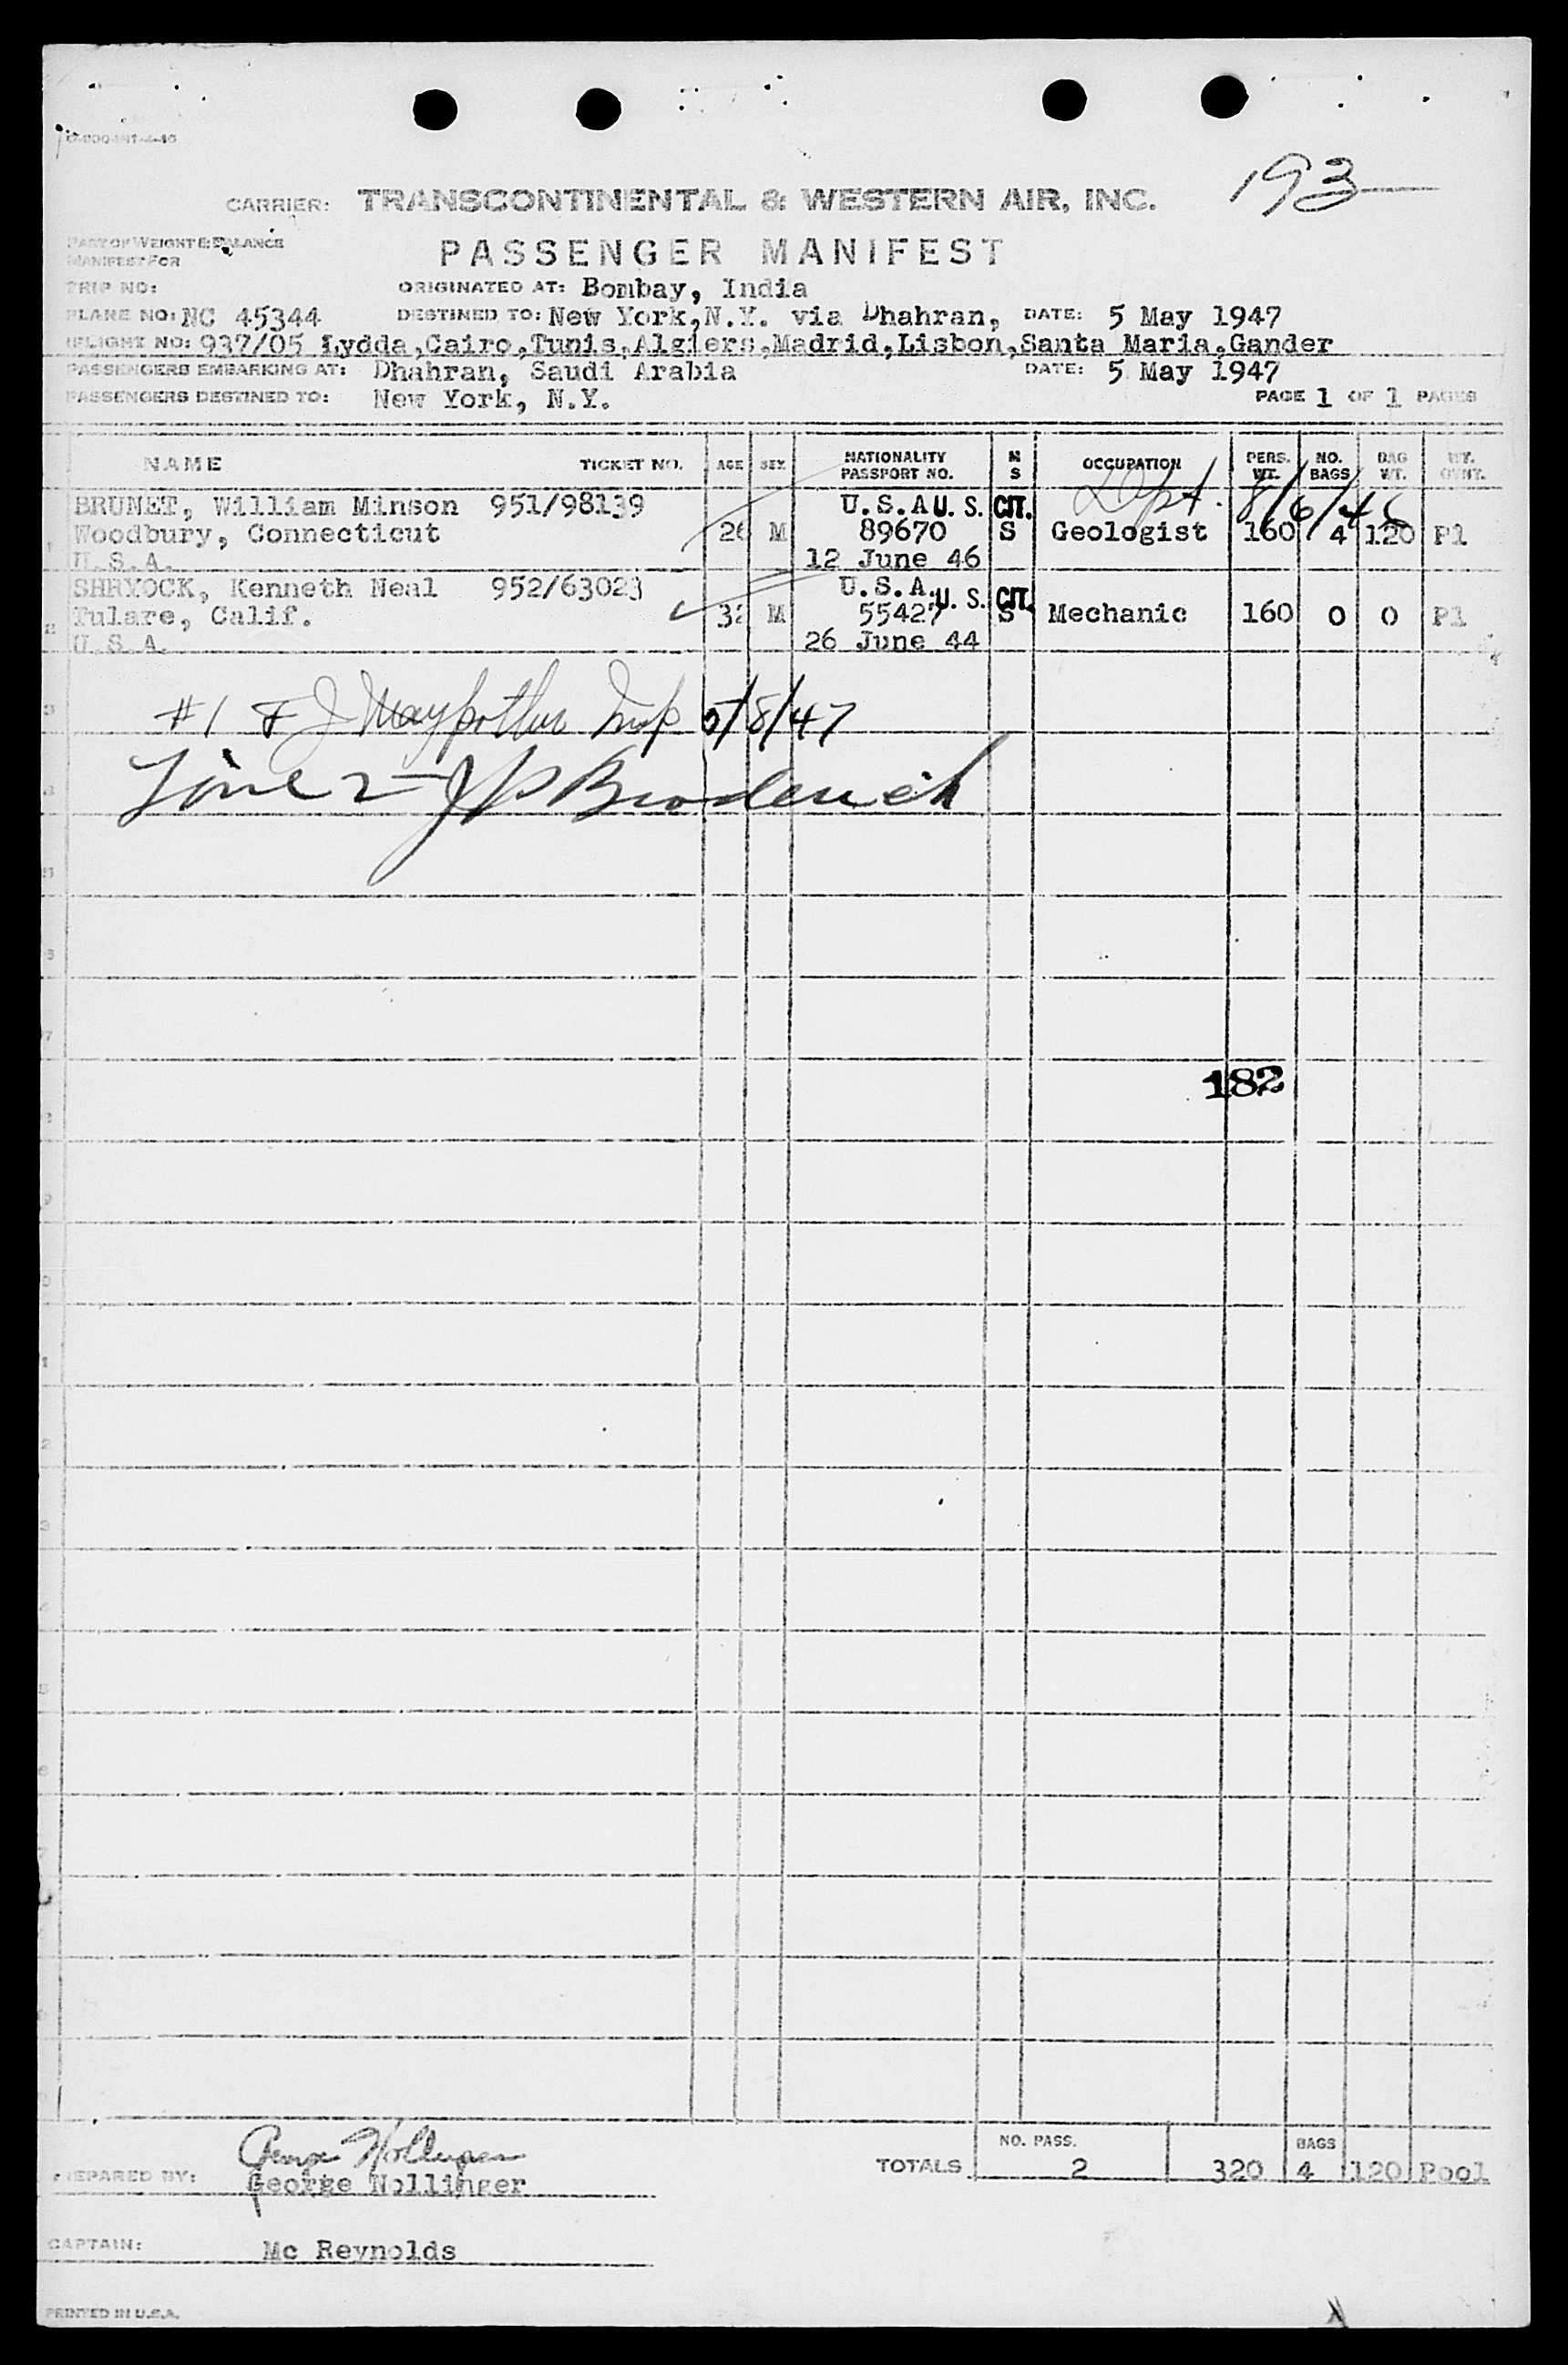 193
CARRIER: TRANSCONTINENTAL & WESTERN AIR, INC.
PART OF WEIGHT & BALANCE
MANIFEST FOR
PASSENGER MANIFEST
TRIP NO: ORIGINATED AT: Bombay, India
PLANE NO: NC 45344 DESTINED TO: New York, N.Y. via Dhahran, DATE: 5 May 1947
FLIGHT NO: 937/05 Lydda,Cairo,Tunis,Algiers,Madrid,Lisbon,Santa Maria,Gander
PASSENGERS EMBARKING AT: Dhahran, Saudi Arabia DATE: 5 May 1947
PASSENGERS DESTINED TO: New York, N.Y. PAGE 1 OF 1 PAGES
NAME TICKET NO. AGE SEX NATIONALITY PASSPORT NO. M S OCCUPATION PERS. WT. NO. BAGS BAG WT.
Dpt. 8/6/46
BRUNET, William Minson 951/98139 U.S.A U. S. CIT.
1 Woodbury, Connecticut 26 M 89670 S Geologist 160 4 120 Pl
U.S.A. 12 June 46
SHRYOCK, Kenneth Neal 952/63023 U.S.A. U. S. CIT.
2 Tulare, Calif. 32 M 55427 S Mechanic 160 0 0 Pl
U.S.A. 26 June 44
#1 F J Maypother Insp 5/8/47
Line 2 - JP Broderick
182
NO. PASS. BAGS
TOTALS 2 320 4 120 Pool
PREPARED BY: George Nollinger
CAPTAIN: Mc Reynolds
PRINTED IN U.S.A.